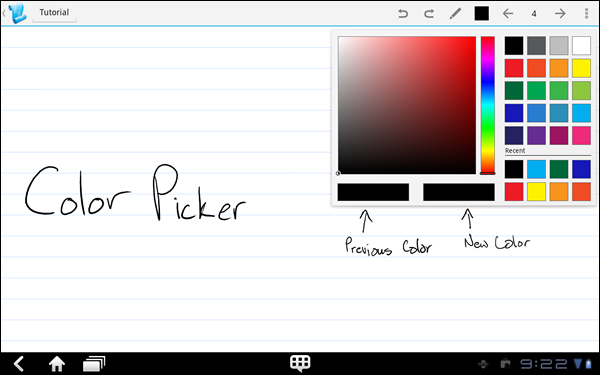 Tutorial
4
Recent
Color Picker
Previous Color
New Color
9:22